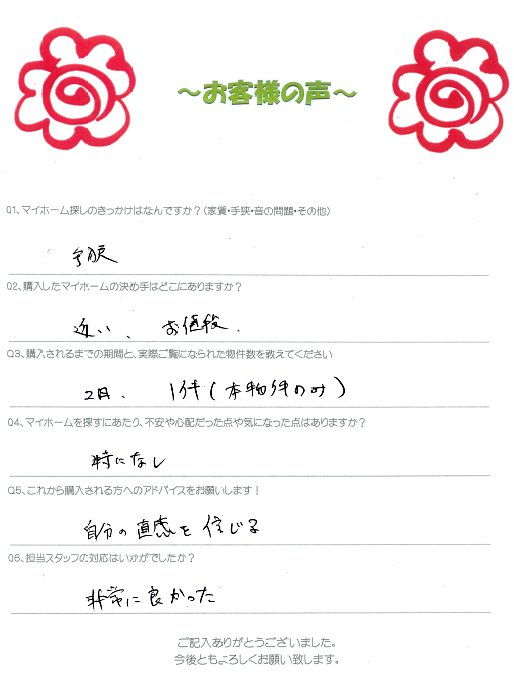 ～お客様の声～
Q1、マイホーム探しのきっかけはなんですか？（家賃・手狭・音の問題・その他）
手狭
Q2、購入したマイホームの決め手はどこにありますか？
近い、お値段、
Q3、購入されるまでの期間と、実際ご覧になられた物件数を教えてください
2日、 1件(本物件のみ)
Q4、マイホームを探すにあたり、不安や心配だった点や気になった点はありますか？
特になし
Q5、これから購入される方へのアドバイスをお願いします！
自分の直感を信じる
Q6、担当スタッフの対応はいかがでしたか？
非常に良かった
ご記入ありがとうございました。
今後ともよろしくお願い致します。